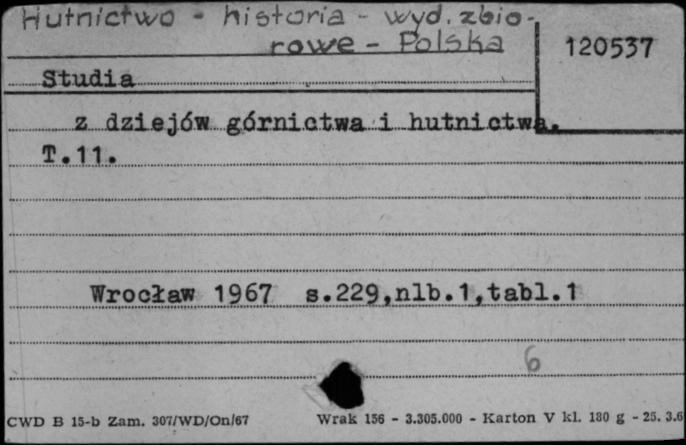 Hutnictwo - historia - wyd. zbio-
rowe - Polska
120537
Studia
z dziejów górnictwa i hutnictwa.
T.11.
Wrocław 1967 s.229,nlb.1,tabl.1
6
CWD B 15-b Zam. 307/WD/On/67 Wrak 156 - 3.305.000 - Karton V kl. 180 g - 25. 3.6